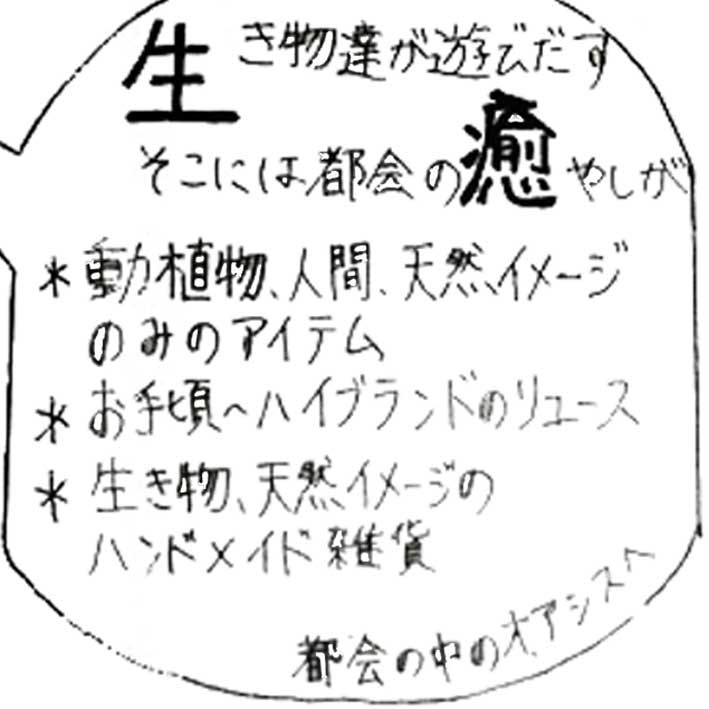 生き物達が遊びだす
そこには都会の癒やしが
* 動植物、人間、天然イメージ
のみのアイテム
* お手頃〜ハイブランドのリユース
* 生き物、天然イメージの
ハンドメイド雑貨
都会の中のオアシスへ